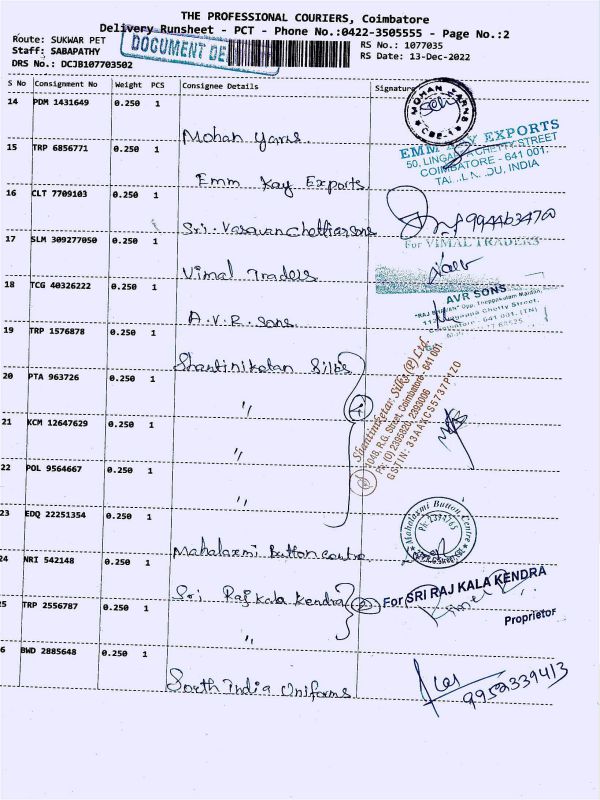 THE PROFESSIONAL COURIERS, Coimbatore
Delivery Runsheet - PCT - Phone No.:0422-3505555 - Page No.:2
Route: SUKWAR PET
RS No.: 1077035
Staff: SABAPATHY
DOCUMENT DE
RS Date: 13-Dec-2022
DRS No.: DCJB107703502
S No Consignment No Weight PCS Consignee Details Signature
14 PDM 1431649 0.250 1
MOHAN YARNS
CBE-1
Mohan Yarns.
15 TRP 6856771 0.250 1
EMM KAY EXPORTS
50, LINGAPPA CHETTY STREET
COIMBATORE - 641 001.
INDIA
Emm Kay Exports
16 CLT 7709103 0.250 1
Sri. Vasavan Chettiar sons
994463470
17 SLM 309277050 0.250 1
For VIMAL TRADERS
Vimal Traders
18 TCG 40326222 0.250 1
AVR SONS
Chetty Street,
A.V.R. Sons.
19 TRP 1576878 0.250 1
Shantiniketan Silks
Shantiniketan Silks (P) Ltd.
R.G. Street, Coimbatore - 641 001.
Ph: (0) 2395820, 2393006
GSTIN: 33AAKCS5737P1Z0
20 PTA 963726 0.250 1
"
4
21 KCM 12647629 0.250 1
"
22 POL 9564667 0.250 1
"
23 EDQ 22251354 0.250 1
Mahalaxmi Button Centre
Mahalaxmi Button centre
24 NRI 542148 0.250 1
Sri Raj kala Kendra
2
For SRI RAJ KALA KENDRA
Proprietor
5 TRP 2556787 0.250 1
"
6 BWD 2885648 0.250 1
South India Uniforms
9952339413